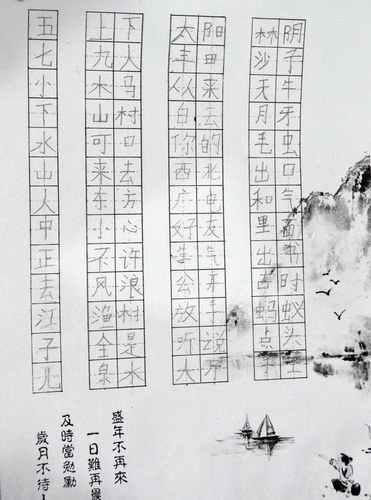 阴子牛牙虫口气画书时蚁头
林沙天月毛出和里出古蚂点
阳田来去的北电友气手说
太从白你西广好公放听大
下大马村口去方心许浪树是水
上九木山可来东小不风渔全泉
五七小下水山人中正去江子儿
盛年不再來
一日難再晨
及時當勉勵
歲月不待